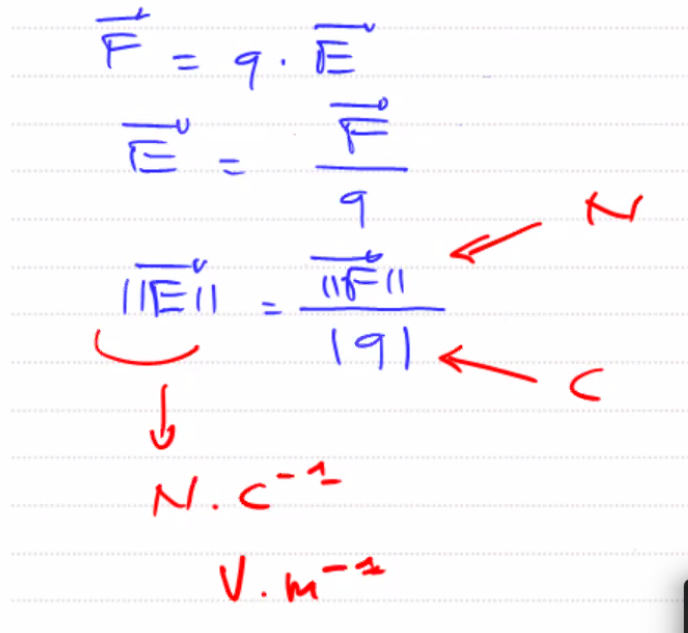 F⃗ = q . E⃗
E⃗ = F⃗ / q
N
||E⃗|| = ||F⃗|| / |q|
C
N . C⁻¹
V . m⁻¹